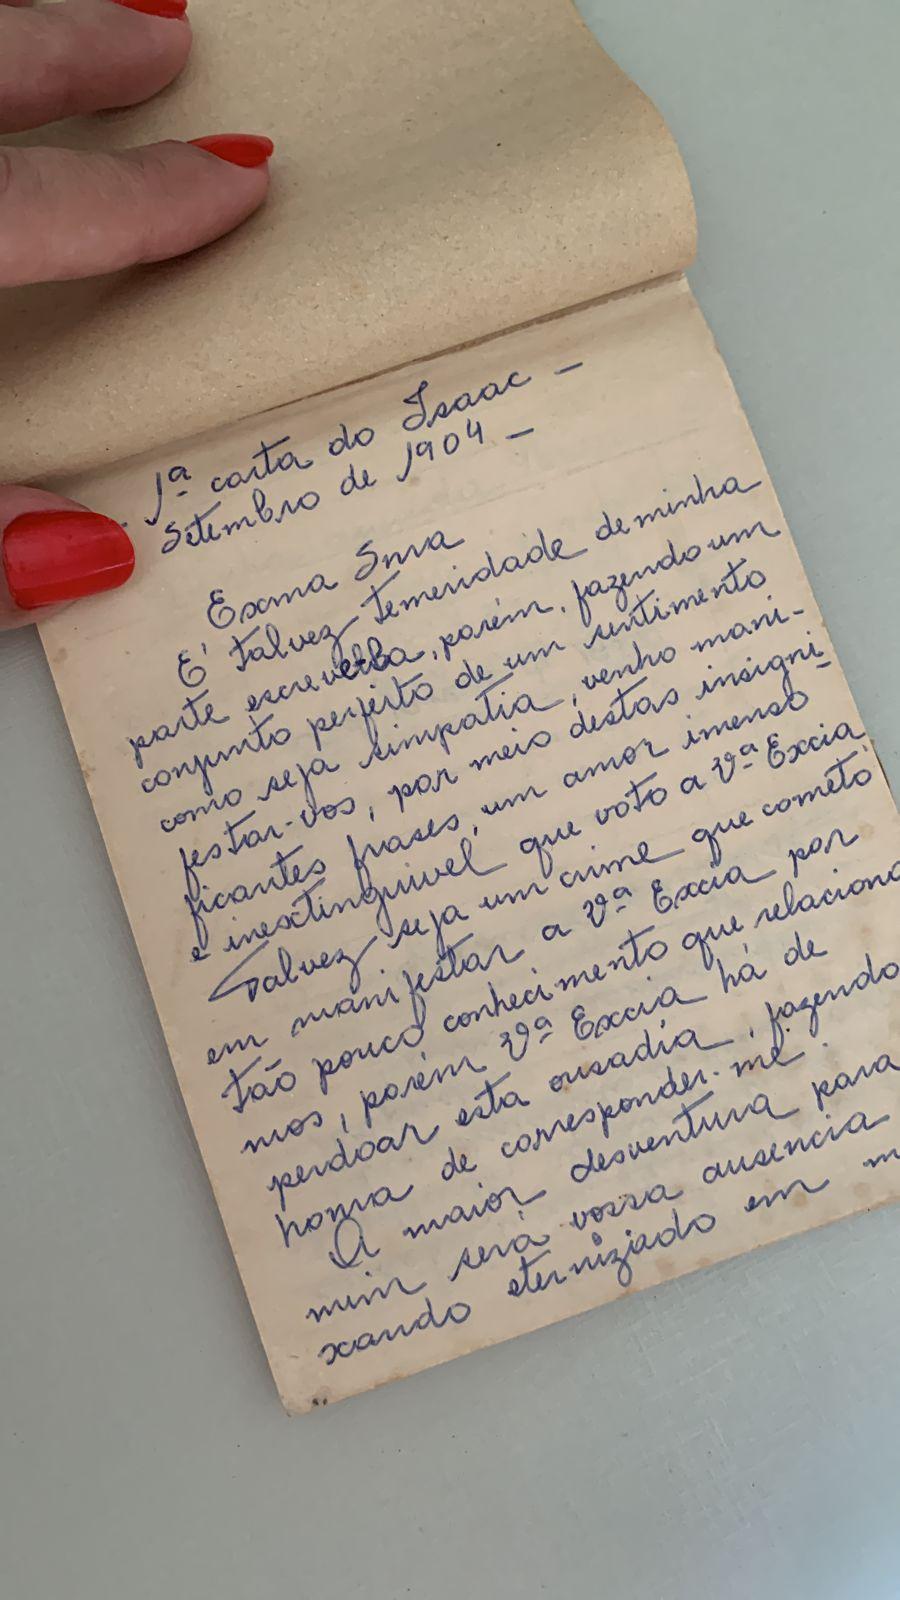 1ª carta do Isaac -
Setembro de 1904 -
Exma Snra
E' talvez temeridade de minha
parte escrevêlha, porém, fazendo um
conjunto perfeito de um sentimento
como seja simpatia, venho mani-
festar-vos, por meio destas insigni-
ficantes frases, um amor imenso
e inextinguivel que voto a Vª Excia.
Talvez seja um crime que cometo
em manifestar a Vª Excia por
tão pouco conhecimento que relaciona
mos, porém Vª Excia há de
perdoar esta ousadia, fazendo
honra de corresponder-me.
A maior desventura para
mim será vossa ausencia
xando eternizado em m